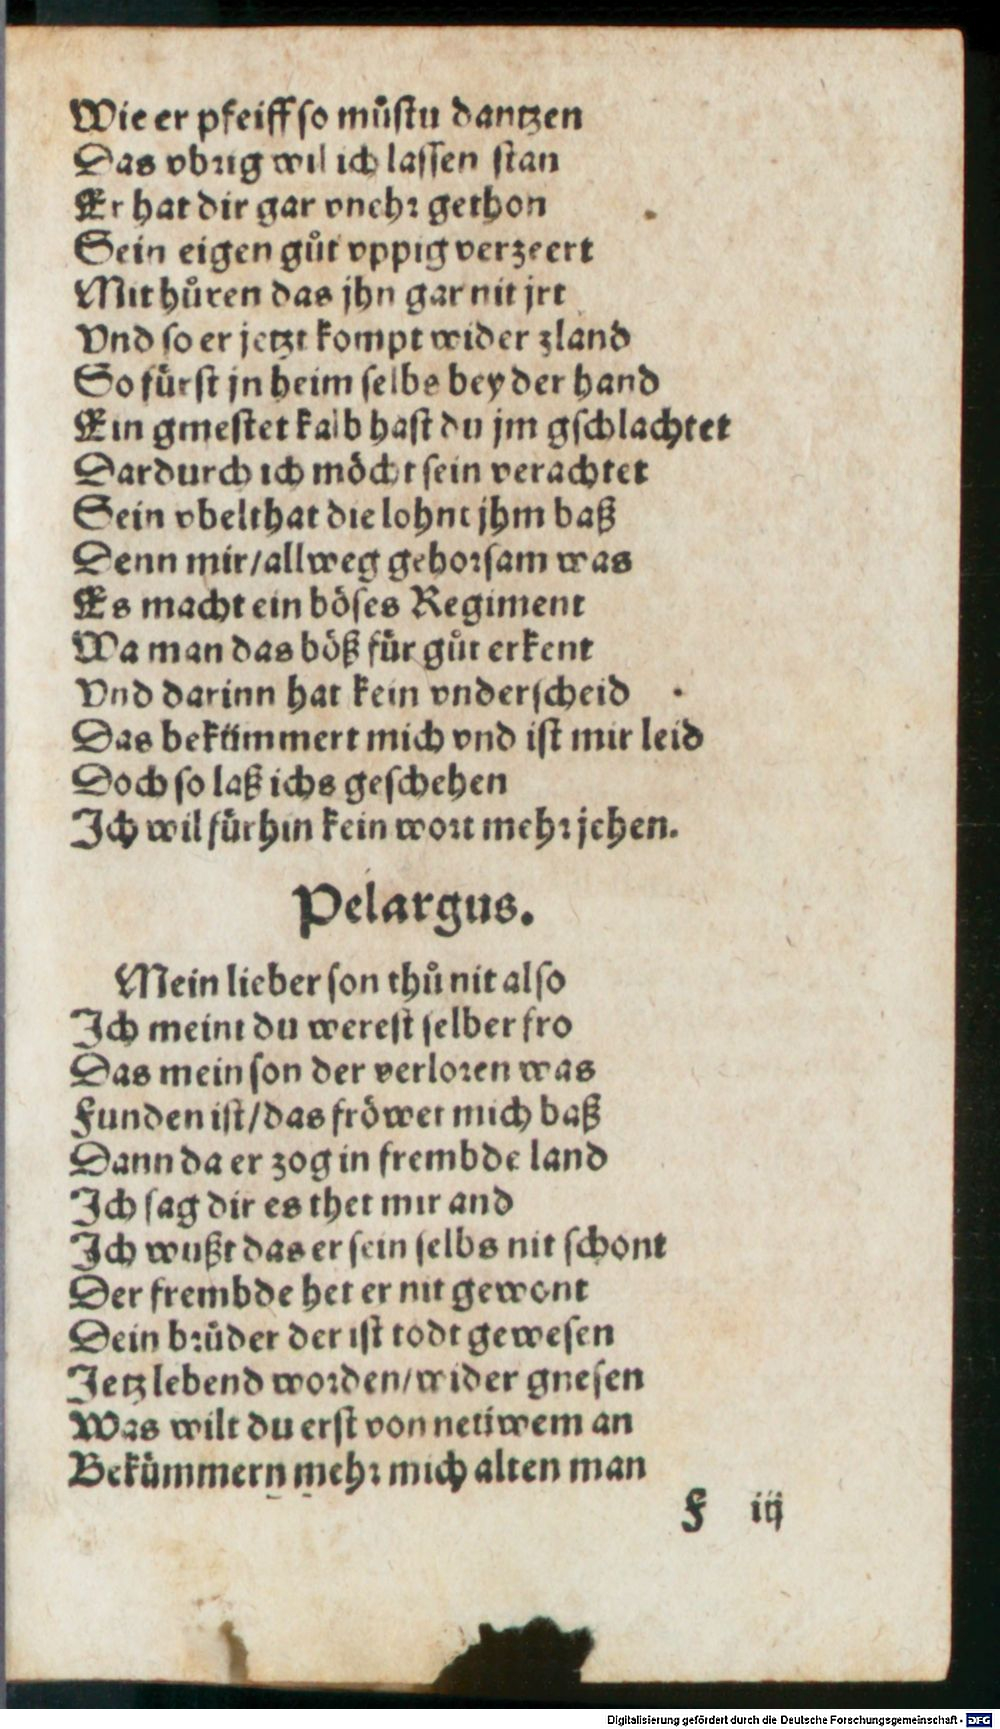 Wie er pfeiff so můſtu dantzen
Das vbrig wil ich laſſen ſtan
Er hat dir gar vnehr gethon
Sein eigen gůt vppig verzeert
Mit hůren das jhn gar nit jrt
Vnd ſo er jetzt kompt wider zland
So fürſt jn heim ſelbs bey der hand
Ein gmeſtet kalb haſt du jm gſchlachtet
Dardurch ich möcht ſein verachtet
Sein vbelthat die lohnt jhm baß
Denn mir/allweg gehorſam was
Es macht ein böſes Regiment
Wa man das böß für gůt erkent
Vnd darinn hat kein vnderſcheid
Das bekümmert mich vnd iſt mir leid
Doch ſo laß ichs geſchehen
Ich wil fürhin kein wort mehr jehen.
Pelargus.
Mein lieber ſon thů nit alſo
Ich meint du wereſt ſelber fro
Das mein ſon der verloren was
Funden iſt/das fröwet mich baß
Dann da er zog in frembde land
Ich ſag dir es thet mir and
Ich wußt das er ſein ſelbs nit ſchont
Der frembde het er nit gewont
Dein brůder der iſt todt geweſen
Jetz lebend worden/wider gneſen
Was wilt du erſt von neüwem an
Bekümmern mehr mich alten man
F iij
Digitalisierung gefördert durch die Deutsche Forschungsgemeinschaft - DFG